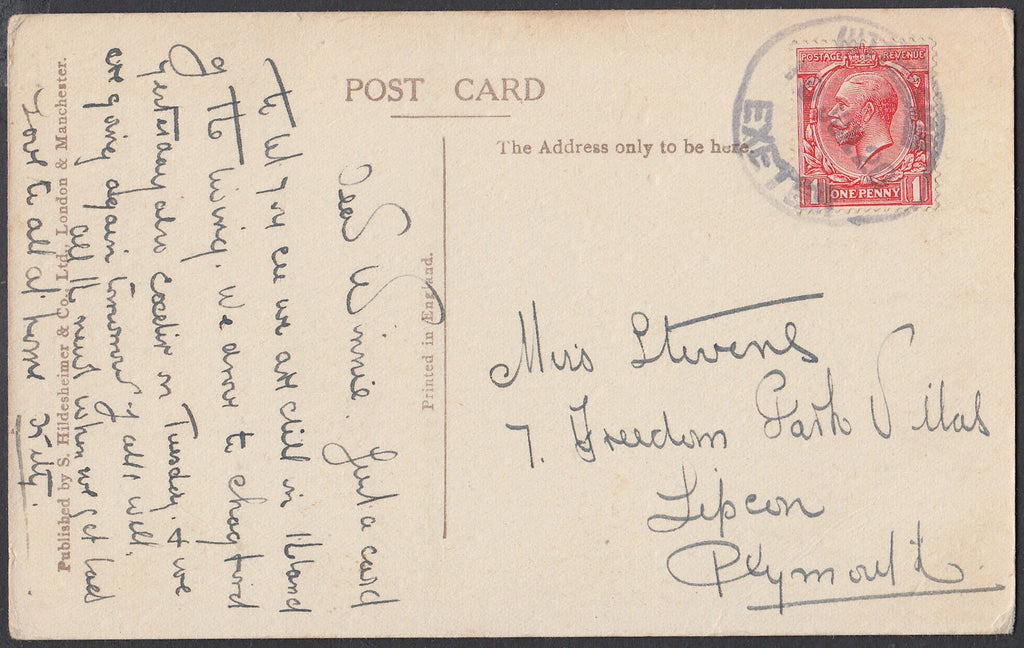 POST CARD
The Address only to be here.
POSTAGE REVENUE
1 ONE PENNY 1
EXETER
Miss Stevens
7. Freedom Park Villas
Lipson
Plymouth
Printed in England.
Dear Winnie. Just a card
to let you see we are still in
of the living. We drove to Chagford
yesterday also on Tuesday. & we
are going again tomorrow if all's well.
all the news when we get back
Love to all at home Kitty.
Published by S. Hildesheimer & Co., Ltd., London & Manchester.